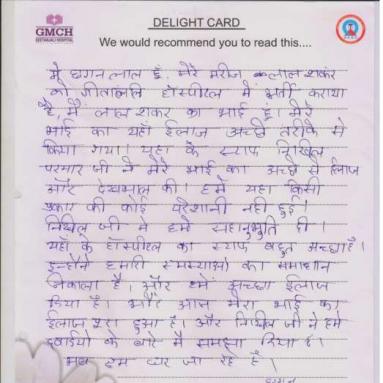 GMCH
GEETANJALI HOSPITAL
DELIGHT CARD
We would recommend you to read this....
मैं छगन लाल हूं, मेरे मरीज लाल शंकर
को गीतांजलि हॉस्पीटल में भर्ती कराया
है, मैं लाल शंकर का भाई हूं। मेरे
भाई का यहाँ ईलाज अच्छे तरीके से
किया गया। यहां के स्टाफ निखिल
परमार जी ने मेरे भाई का अच्छे से ईलाज
और देखभाल की। हमें यहा किसी
प्रकार की कोई परेशानी नही हुई।
निखिल जी ने हमे सहानुभुति दी।
यहाँ के हॉस्पीटल का स्टाफ बहुत अच्छा है।
इन्होंने हमारी समस्याओ का समाधान
निकाला है। और हमें अच्छा ईलाज
दिया है। और आज मेरा भाई का
ईलाज पूरा हुआ है। और निखिल जी ने हमे
दवाईयो के बारे मै समझा दिया है।
अब हम घर जा रहे है।